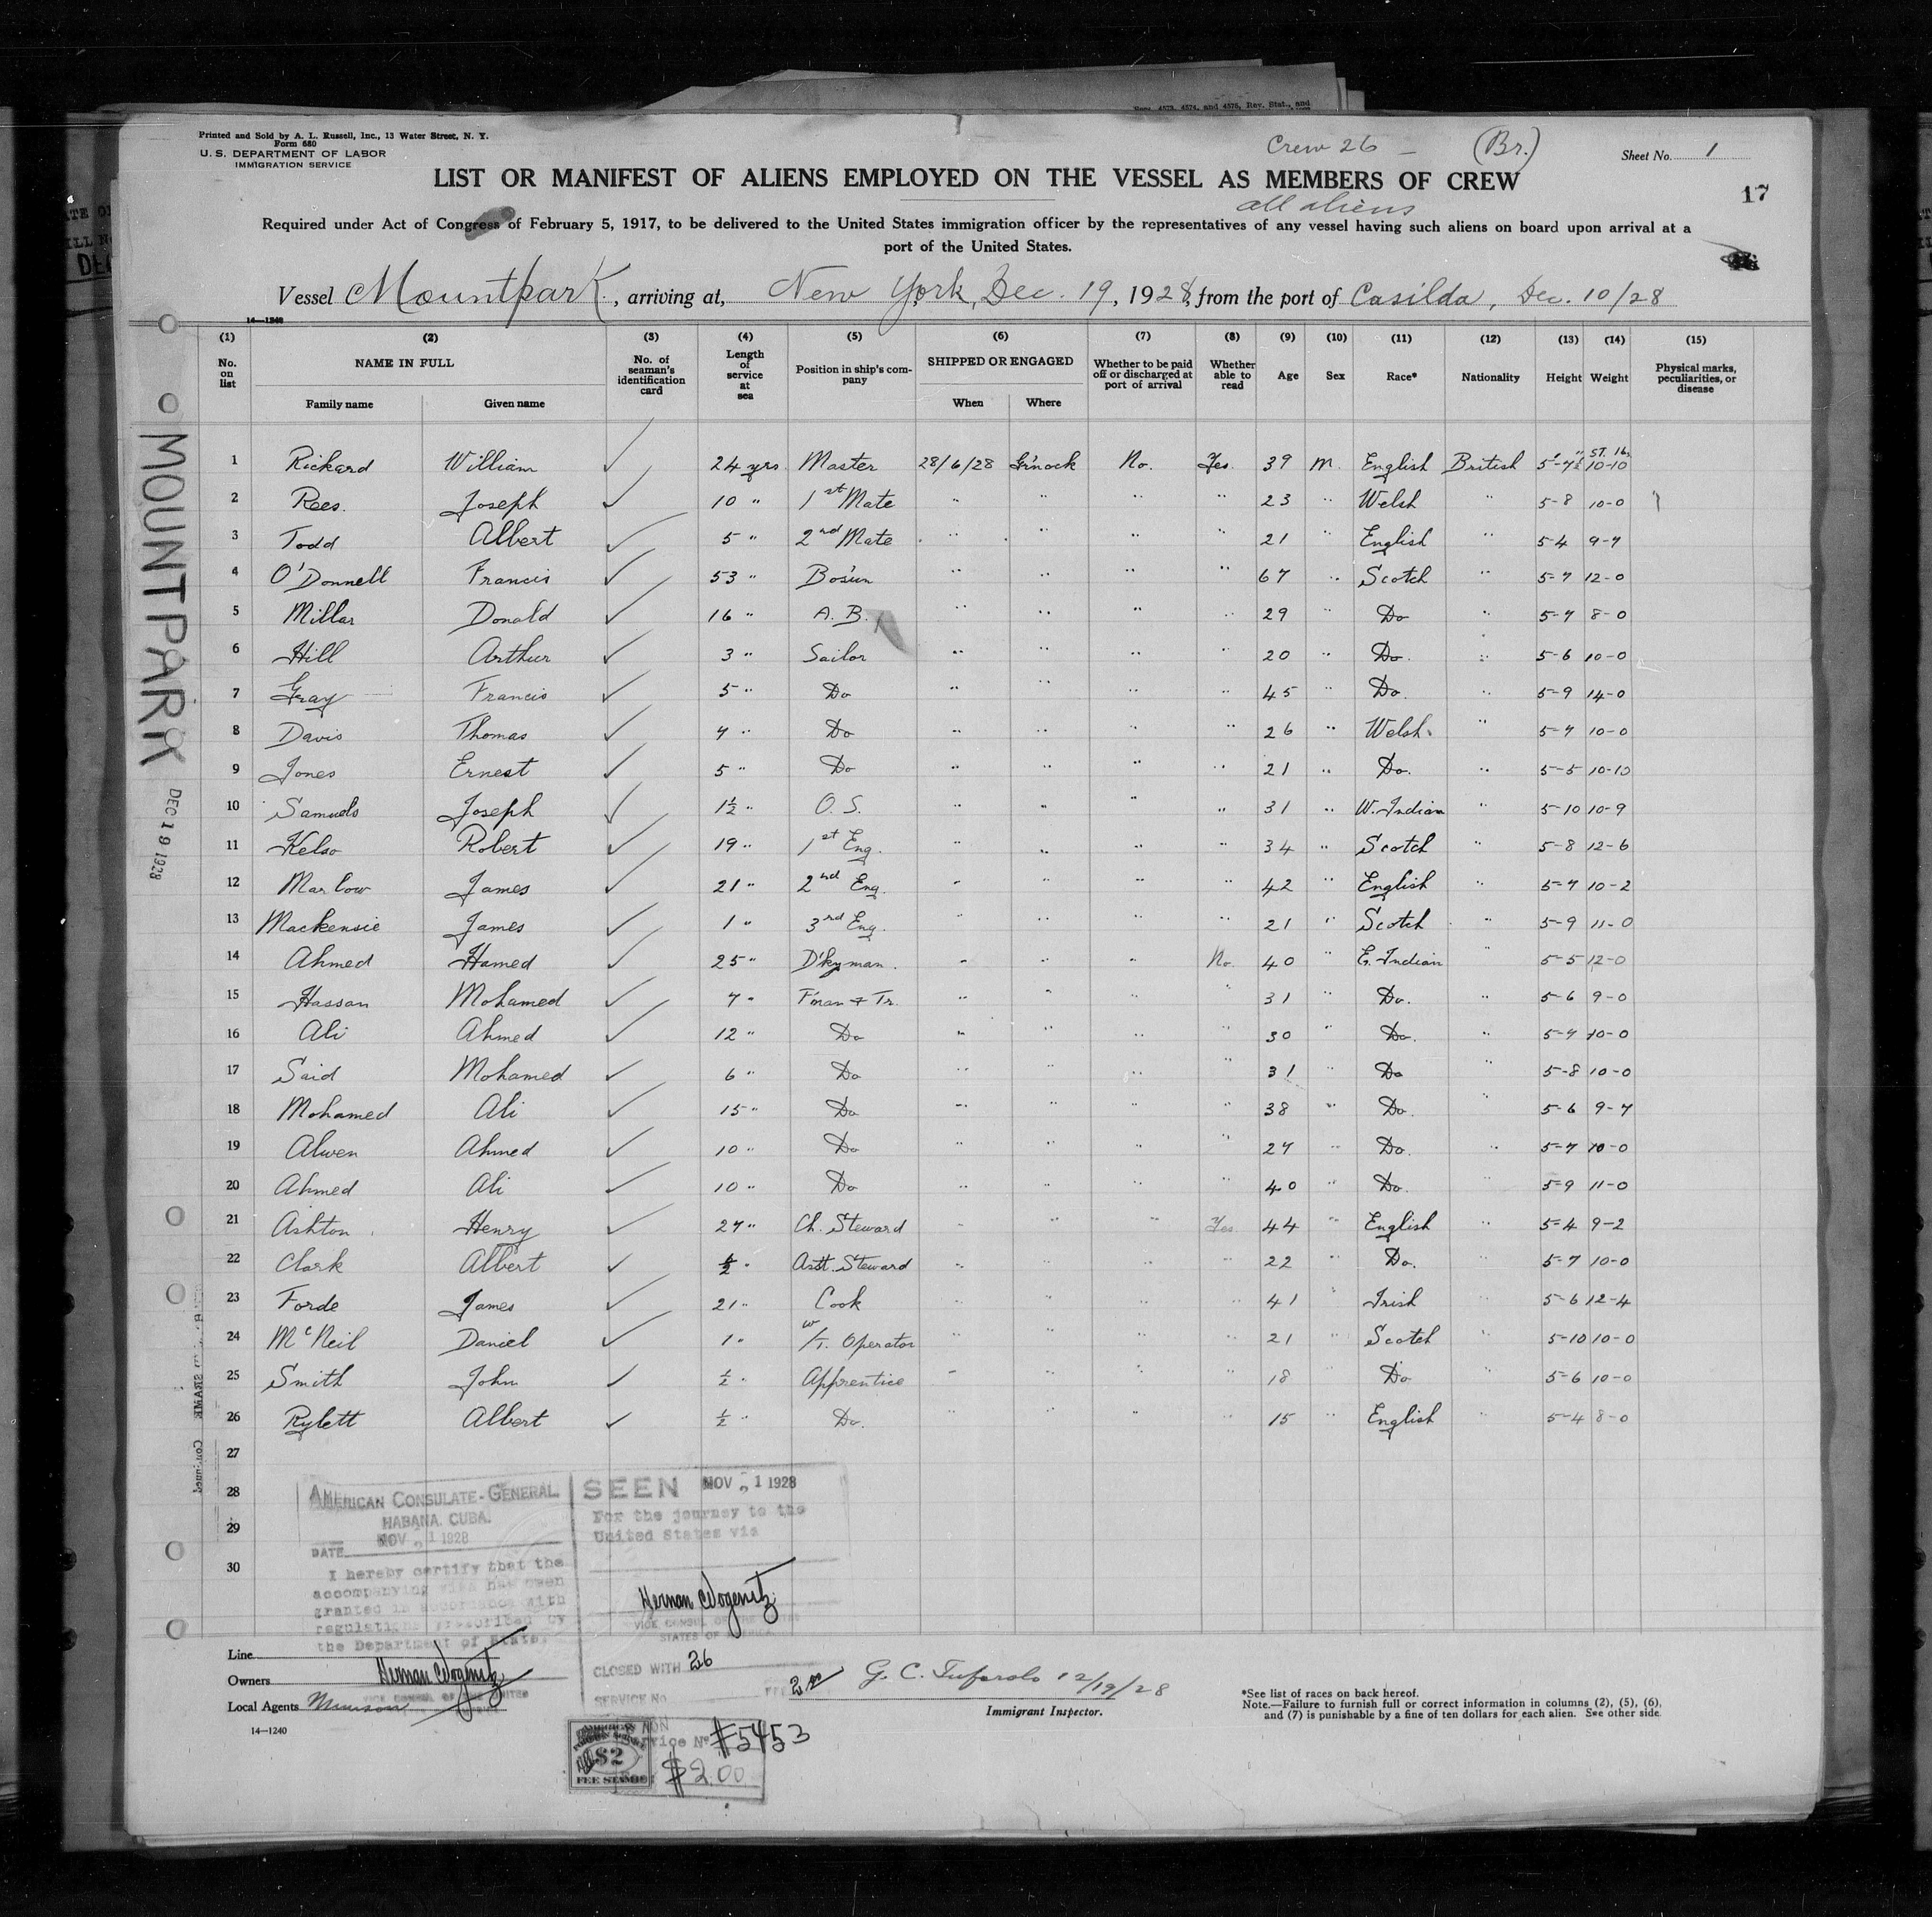 Rev. 4573, 4574, and 4575, Rev. Stat., and
Printed and Sold by A. L. Russell, Inc., 13 Water Street, N. Y.
Form 680
U. S. DEPARTMENT OF LABOR
IMMIGRATION SERVICE
Crew 26 — (Br.)
Sheet No. 1
LIST OR MANIFEST OF ALIENS EMPLOYED ON THE VESSEL AS MEMBERS OF CREW
17
all aliens
Required under Act of Congress of February 5, 1917, to be delivered to the United States immigration officer by the representatives of any vessel having such aliens on board upon arrival at a
port of the United States.
Vessel Mountpark, arriving at, New York, Dec. 19, 1928, from the port of Casilda, Dec. 10/28
14—1240
(1) (2) (3) (4) (5) (6) (7) (8) (9) (10) (11) (12) (13) (14) (15)
No. on list NAME IN FULL Family name Given name No. of seaman's identification card Length of service at sea Position in ship's company SHIPPED OR ENGAGED When Where Whether to be paid off or discharged at port of arrival Whether able to read Age Sex Race* Nationality Height Weight Physical marks, peculiarities, or disease
1 Rickard William ✓ 24 yrs. Master 28/6/28 Gr'nock No. Yes. 39 M. English British 5-7½ ST. lbs 10-10
2 Rees. Joseph ✓ 10 " 1st Mate " " " " 23 " Welsh " 5-8 10-0
3 Todd Albert ✓ 5 " 2nd Mate " " " " 21 " English " 5-4 9-7
4 O'Donnell Francis ✓ 53 " Bos'un " " " " 67 " Scotch " 5-7 12-0
5 Millar Donald ✓ 16 " A. B. " " " " 29 " Do " 5-7 8-0
6 Hill Arthur ✓ 3 " Sailor " " " " 20 " Do. " 5-6 10-0
7 Gray Francis ✓ 5 " Do " " " " 45 " Do. " 5-9 14-0
8 Davis Thomas ✓ 7 " Do " " " " 26 " Welsh. " 5-7 10-0
9 Jones Ernest ✓ 5 " Do " " " " 21 " Do. " 5-5 10-10
10 Samuels Joseph ✓ 1½ " O. S. " " " " 31 " W. Indian 5-10 10-9
11 Kelso Robert ✓ 19 " 1st Eng. " " " " 34 " Scotch " 5-8 12-6
12 Marlow James ✓ 21 " 2nd Eng. " " " " 42 " English " 5-7 10-2
13 Mackensie James ✓ 1 " 3rd Eng. " " " " 21 " Scotch " 5-9 11-0
14 Ahmed Hamed ✓ 25 " D'kyman. " " " No. 40 " E. Indian " 5-5 12-0
15 Hassan Mohamed ✓ 7 " F'man & Tr. " " " " 31 " Do. " 5-6 9-0
16 Ali Ahmed ✓ 12 " Do " " " " 30 " Do. " 5-7 10-0
17 Said Mohamed ✓ 6 " Do " " " " 31 " Do " 5-8 10-0
18 Mohamed Ali ✓ 15 " Do " " " " 38 " Do. " 5-6 9-7
19 Alwen Ahmed ✓ 10 " Do " " " " 27 " Do. " 5-7 10-0
20 Ahmed Ali ✓ 10 " Do " " " " 40 " Do. " 5-9 11-0
21 Ashton Henry ✓ 27 " Ch. Steward " " " Yes. 44 " English " 5-4 9-2
22 Clark Albert ✓ " Asst. Steward " " " " 22 " Do. " 5-7 10-0
23 Forde James ✓ 21 " Cook " " " " 41 " Irish " 5-6 12-4
24 McNeil Daniel ✓ 1 " W/T. Operator " " " " 21 " Scotch " 5-10 10-0
25 Smith John ✓ ½ " Apprentice " " " " 18 " Do " 5-6 10-0
26 Rylett Albert ✓ ½ " Do. " " " " 15 " English " 5-4 8-0
27
28
29
30
MOUNTPARK
DEC 19 1928
AMERICAN CONSULATE-GENERAL
HABANA, CUBA.
DATE NOV 21 1928
I hereby certify that the
accompanying visa has been
granted in accordance with
regulations prescribed by
the Department of State.
SEEN NOV 21 1928
For the journey to the
United States via
VICE CONSUL OF THE UNITED
STATES OF AMERICA
CLOSED WITH 26
SERVICE No.
Line
Owners
VICE CONSUL OF THE UNITED
Local Agents Munson
14—1240
12/19/28
Immigrant Inspector.
*See list of races on back hereof.
Note.—Failure to furnish full or correct information in columns (2), (5), (6),
and (7) is punishable by a fine of ten dollars for each alien. See other side.
$2
FEE STAMP
Service No #5453
$2.00